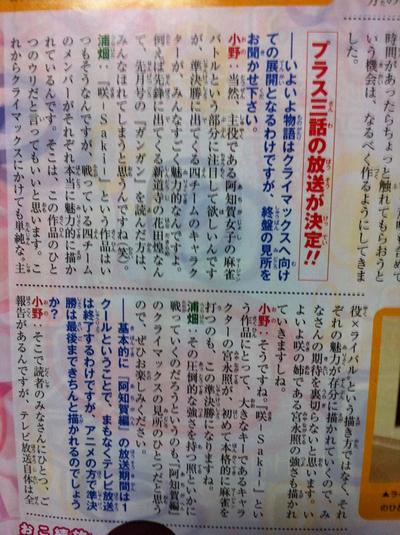 時間があったらちょっと触れてもらおうと
いう機会は、なるべく作るようにしてきま
した。
プラス三話の放送が決定!!
――いよいよ物語はクライマックスへ向け
ての展開となるわけですが、終盤の見所を
お聞かせ下さい。
小野:当然、主役である阿知賀女子の麻雀
バトルという部分に注目して欲しいんです
が、準決勝に出てくる四チームのキャラク
ターが、みんなすごく魅力的なんですよ。
例えば先鋒に出てくる新道寺の花田煌なん
て、先月号の『ガンガン』を読んだ人は、
みんなほれてしまうと思うんですね(笑)。
浦畑:『咲-Saki-』という作品はい
つもそうなんですが、戦っている四チーム
のメンバーがそれぞれ本当に魅力的に描か
れているんです。そこは、この作品のひと
つのウリだと言ってもいいと思います。こ
れからクライマックスにかけても単純な“主
役×ライバル”という描き方ではなく、それ
ぞれの魅力が存分に描かれていくので、み
なさんの期待を裏切らないと思います。い
よいよ咲の姉である宮永照の強さも描かれ
ていきますしね。
小野:そうですね。『咲-Saki-』とい
う作品にとって、大きなキーであるキャラ
クターの宮永照が、初めて本格的に麻雀を
打つのも、この準決勝になりますね。
浦畑:その圧倒的な強さを持つ照といかに
戦っていくのだろうというのも、『阿知賀編』
のクライマックスの見所のひとつだと思う
ので、ぜひお楽しみください。
――基本的に『阿知賀編』の放送期間は1
クールということで、まもなくテレビ放送
は終了するわけですが、アニメの方で準決
勝は最後まできちんと描かれるのでしょう
か?
小野:そこで読者のみなさんにひとつ、ご
報告があるんですが、テレビ放送自体は全